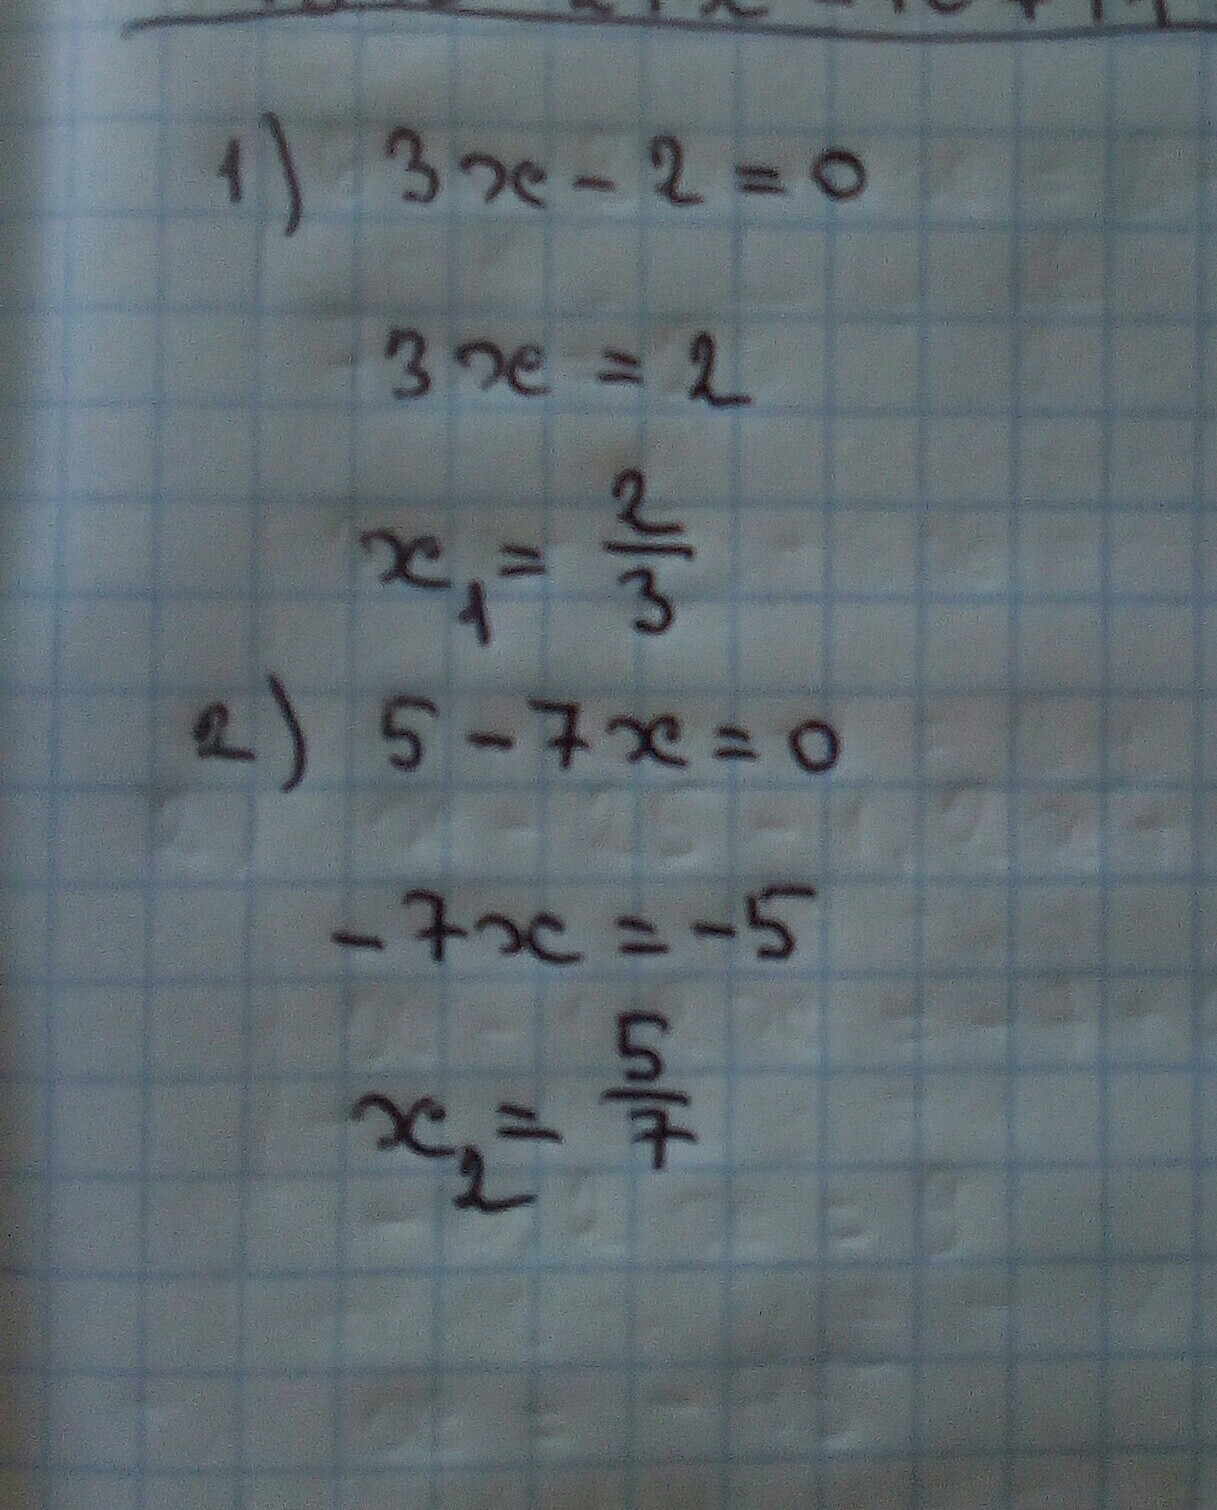 1) 3x - 2 = 0
3x = 2
x₁ = 2/3
2) 5 - 7x = 0
-7x = -5
x₂ = 5/7